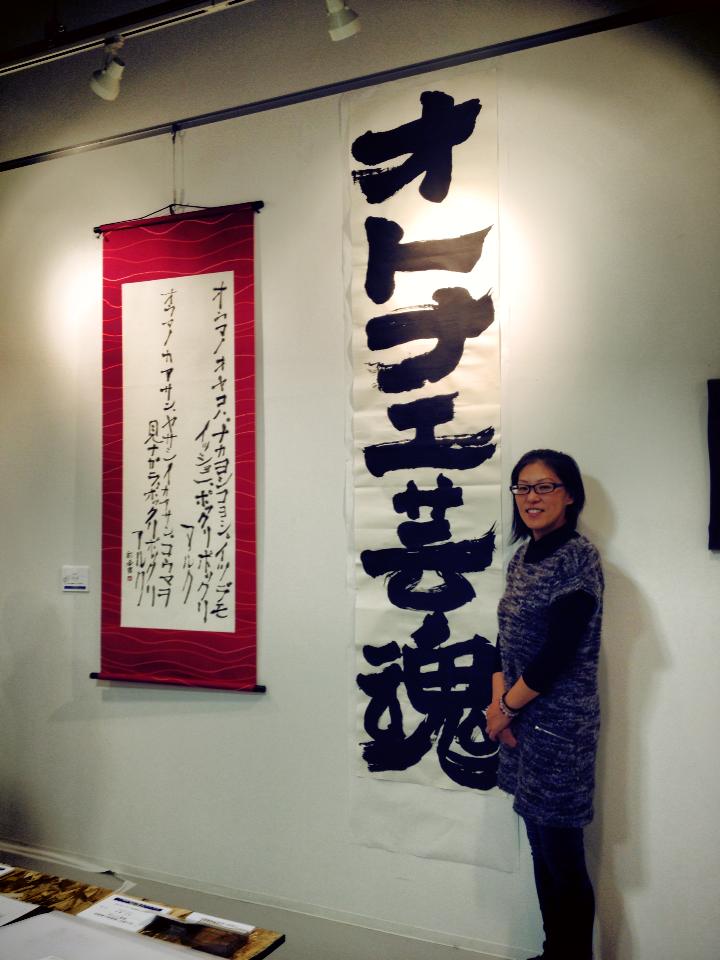 オトナ工芸魂
オウマノオヤコハ、ナカヨシコヨシ、イツデモ
イッショニ、ポックリポックリ
アルク
オウマノカアサン、ヤサシイカアサン、コウマヲ
見ナガラ、ポックリポックリ
アルク